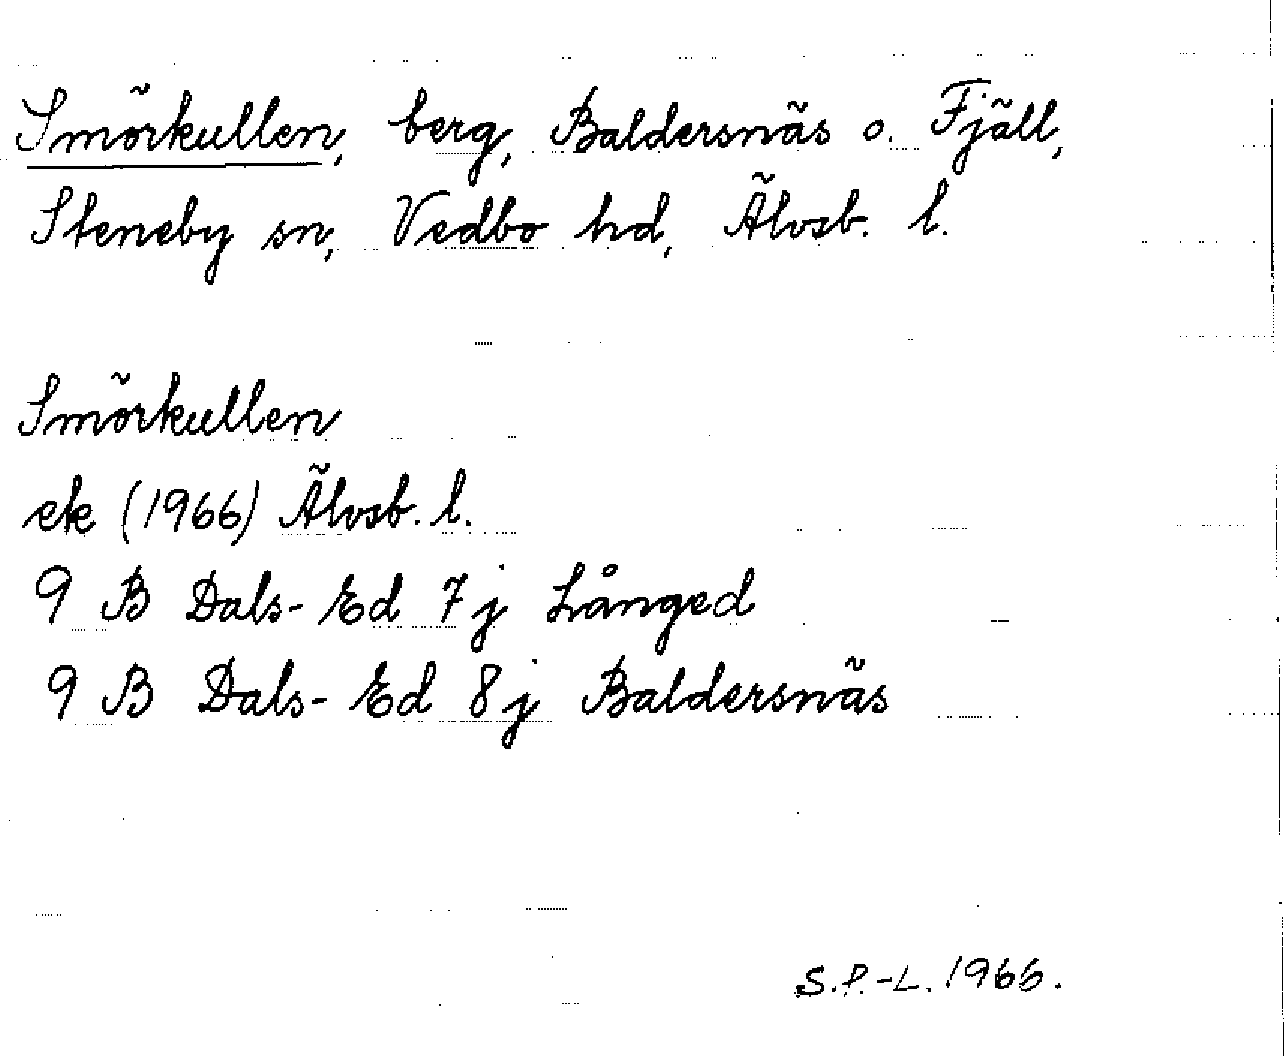 Smörkullen, berg, Baldersnäs o. Fjäll,
Steneby sn, Vedbo hd, Älvsb. l.
Smörkullen
ek (1966) Älvsb. l.
9 B Dals-Ed 7j Långed
9 B Dals-Ed 8j Baldersnäs
S.P.-L. 1966.